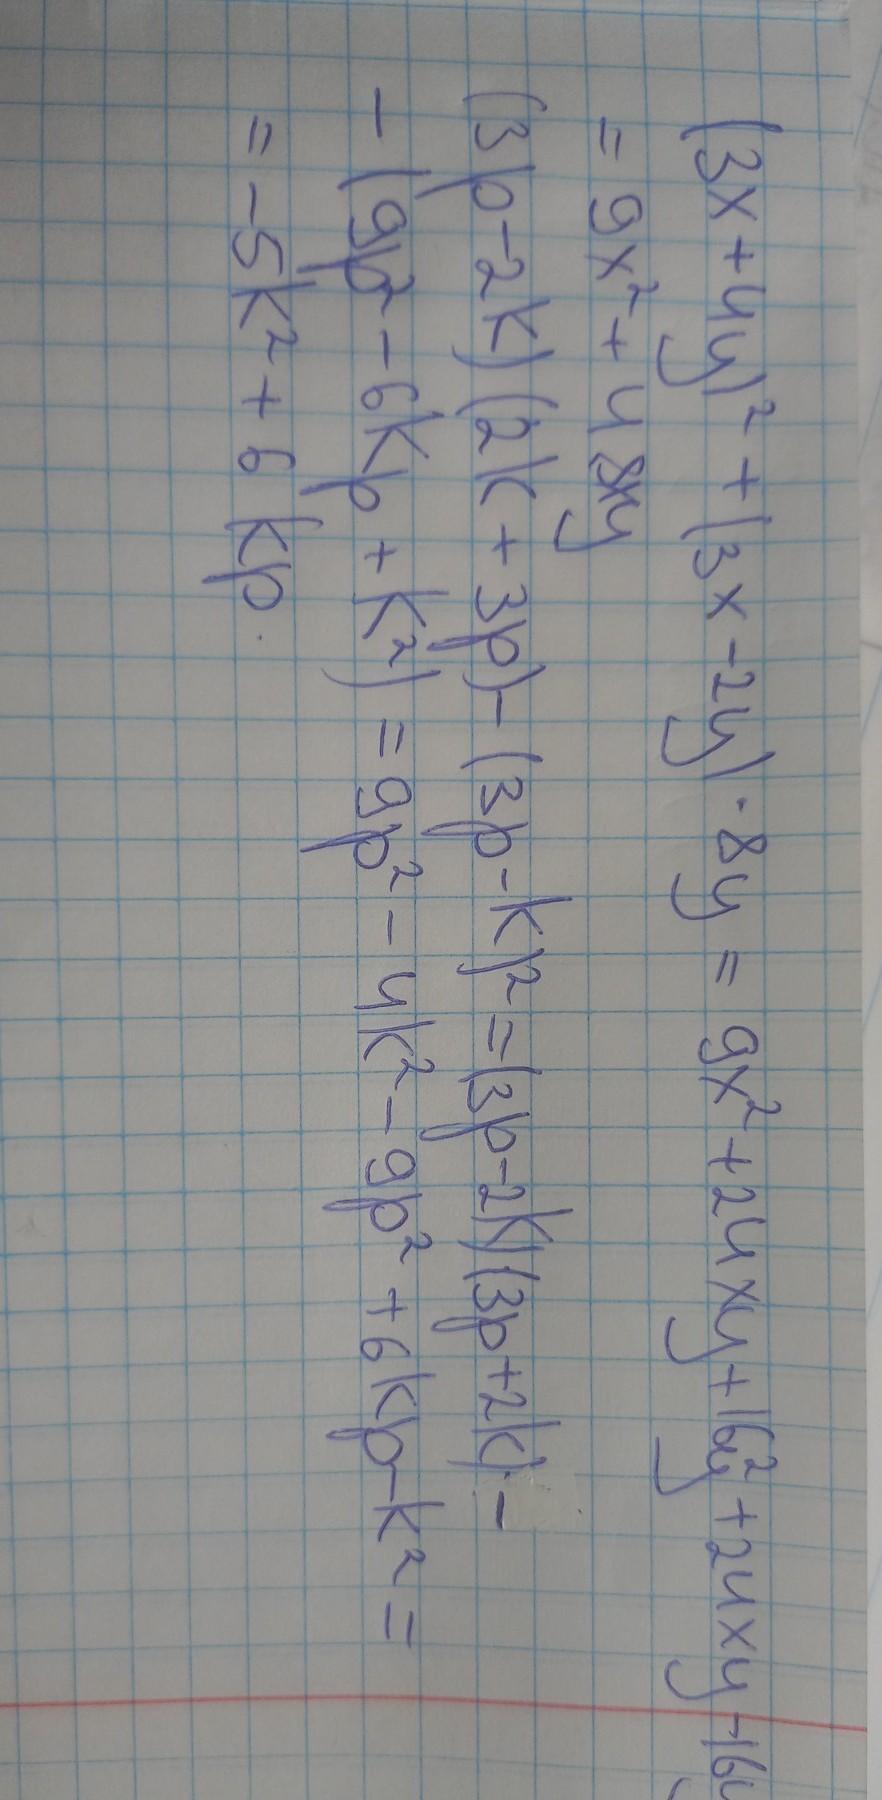 (3x+4y)² + (3x-2y)·8y = 9x²+24xy+16y²+24xy-16y
= 9x²+48xy
(3p-2k)(2k+3p)-(3p-k)²=(3p-2k)(3p+2k)-
-(9p²-6kp+k²)=9p²-4k²-9p²+6kp-k²=
= -5k²+6kp.